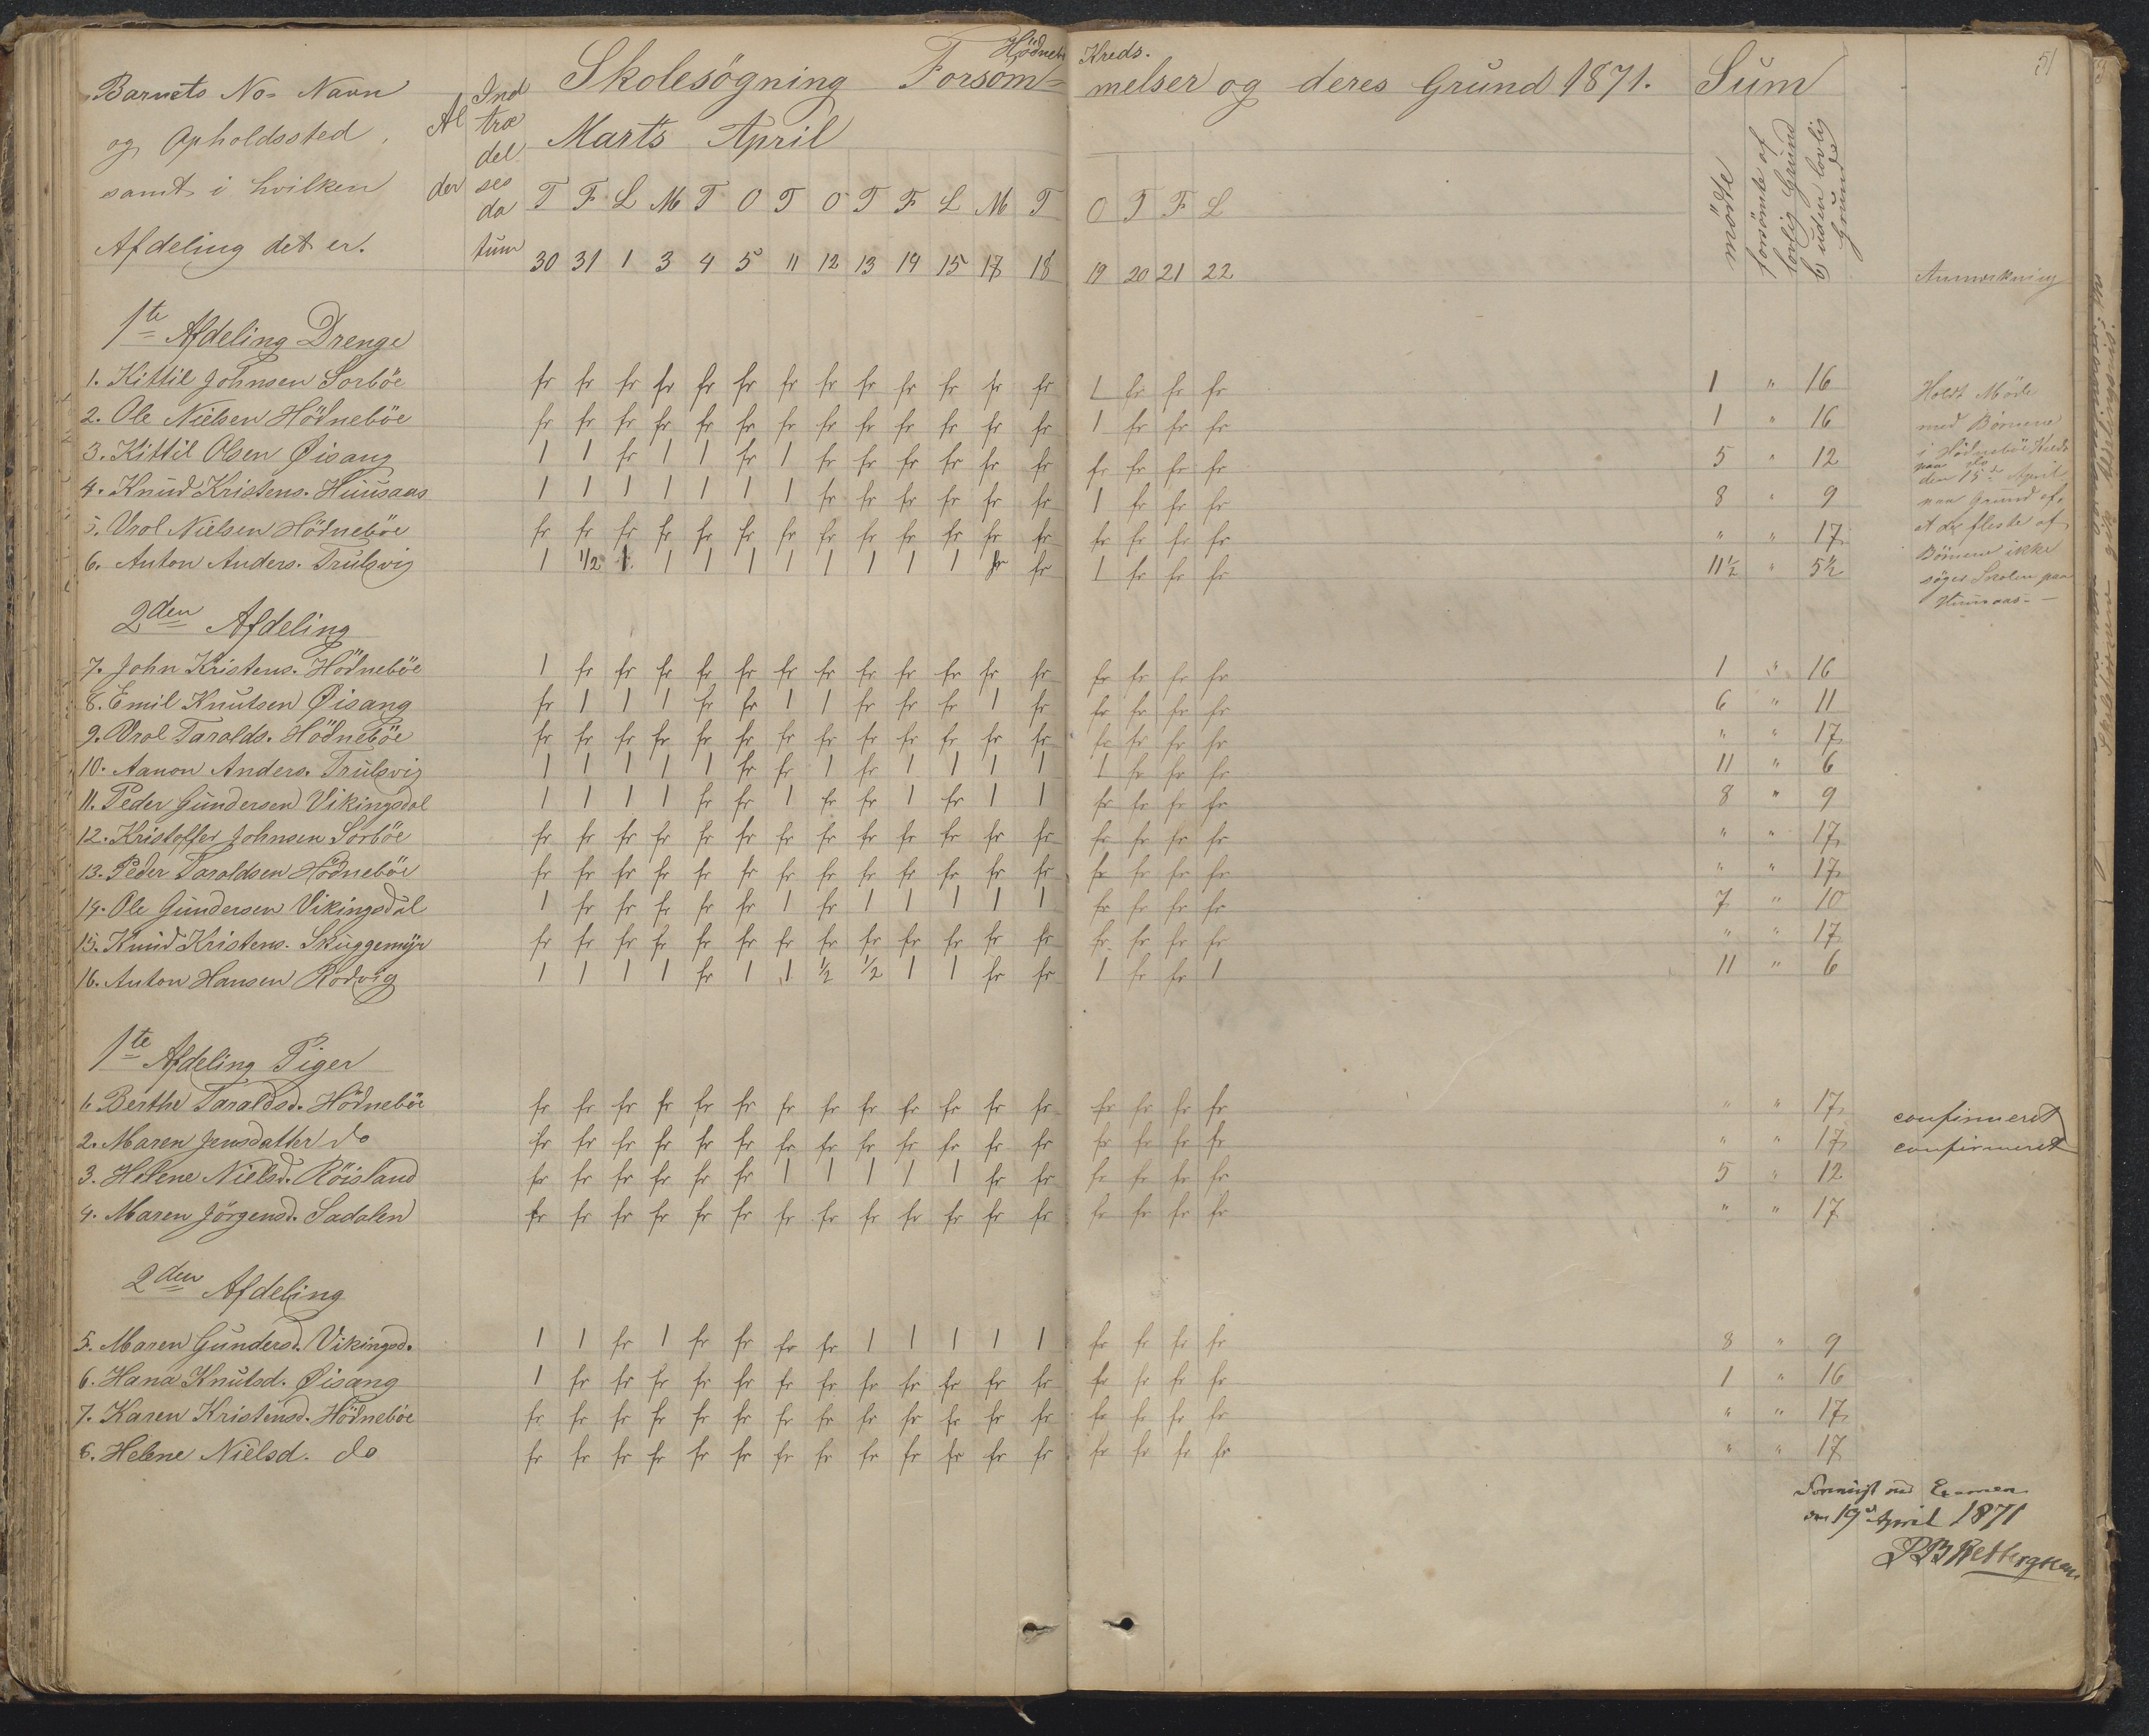 Hödneb Kreds.
51
Barnets No= Navn
og Opholdssted
samt i hvilken
Afdeling det er.
Al
der
Ind
træ
del
ses
da
tum
Skolesögning Forsöm= melser og deres Grund 1871. Sum
Marts April
mödte
forsömte af lovlig Grund
b) uden lovlig Grund
T F L M T O T O T F L M T O T F L
30 31 1 3 4 5 11 12 13 14 15 17 18 19 20 21 22
Anmærkning
1te Afdeling Drenge
1. Kittil Johnsen Sorböe fr fr fr fr fr fr fr fr fr fr fr fr fr 1 fr fr fr 1 " 16
2. Ole Nielsen Hödneböe fr fr fr fr fr fr fr fr fr fr fr fr fr 1 fr fr fr 1 " 16
3. Kittil Olsen Øisang 1 1 fr 1 1 fr 1 fr fr fr fr fr fr fr fr fr fr 5 " 12
4. Knud Kristens. Huusaas 1 1 1 1 1 1 1 fr fr fr fr fr fr 1 fr fr fr 8 " 9
5. Vrol Nielsen Hödneböe fr fr fr fr fr fr fr fr fr fr fr fr fr fr fr fr fr " " 17
6. Anton Anders. Trulsvig 1 1/2 1 1 1 1 1 1 1 1 1 fr fr 1 fr fr fr 11½ " 5½
Holdt Möde
med Börnene
i Hödneböe Kreds
paa
den 15de April
paa Grund af,
at de fleste af
Börnene ikke
söger Skolen paa
Huusaas. —
2den Afdeling
7. John Kristens. Hödneböe 1 fr fr fr fr fr fr fr fr fr fr fr fr fr fr fr fr 1 " 16
8. Emil Knutsen Øisang fr 1 1 1 fr fr 1 1 fr fr fr 1 fr fr fr fr fr 6 " 11
9. Vrol Taralds. Hödneböe fr fr fr fr fr fr fr fr fr fr fr fr fr fr fr fr fr " " 17
10. Aanon Anders. Trulsvig 1 1 1 1 1 fr fr 1 fr 1 1 1 1 1 fr fr fr 11 " 6
11. Peder Gundersen Vikingsdal 1 1 1 1 fr fr 1 fr fr 1 fr 1 1 fr fr fr fr 8 " 9
12. Kristoffer Johnsen Sörböe fr fr fr fr fr fr fr fr fr fr fr fr fr fr fr fr fr " " 17
13. Peder Taraldsen Hödneböe fr fr fr fr fr fr fr fr fr fr fr fr fr fr fr fr fr " " 17
14. Ole Gundersen Vikingsdal 1 fr fr fr fr fr 1 fr 1 1 1 1 1 fr fr fr fr 7 " 10
15. Knud Kristens. Skuggemyr fr fr fr fr fr fr fr fr fr fr fr fr fr fr fr fr fr " " 17
16. Anton Hansen Rödvig 1 1 1 1 fr 1 1 ½ ½ 1 1 fr fr 1 fr fr 1 11 " 6
1te Afdeling Piger
1. Berthe Taraldsd. Hödneböe fr fr fr fr fr fr fr fr fr fr fr fr fr fr fr fr fr " " 17 confirmeret
2. Maren Jensdatter do fr fr fr fr fr fr fr fr fr fr fr fr fr fr fr fr fr " " 17 confirmeret
3. Helene Nielsd. Röisland fr fr fr fr fr fr 1 1 1 1 1 fr fr fr fr fr fr 5 " 12
4. Maren Jörgensd. Sadalen fr fr fr fr fr fr fr fr fr fr fr fr fr fr fr fr fr " " 17
2den Afdeling
5. Maren Gundersd. Vikingsd. 1 1 fr 1 fr fr fr fr 1 1 1 1 1 fr fr fr fr 8 " 9
6. Hana Knutsd. Øisang 1 fr fr fr fr fr fr fr fr fr fr fr fr fr fr fr fr 1 " 16
7. Karen Kristensd. Hödneböe fr fr fr fr fr fr fr fr fr fr fr fr fr fr fr fr fr " " 17
8. Helene Nielsd. do fr fr fr fr fr fr fr fr fr fr fr fr fr fr fr fr fr " " 17
Examen
den 19de April 1871